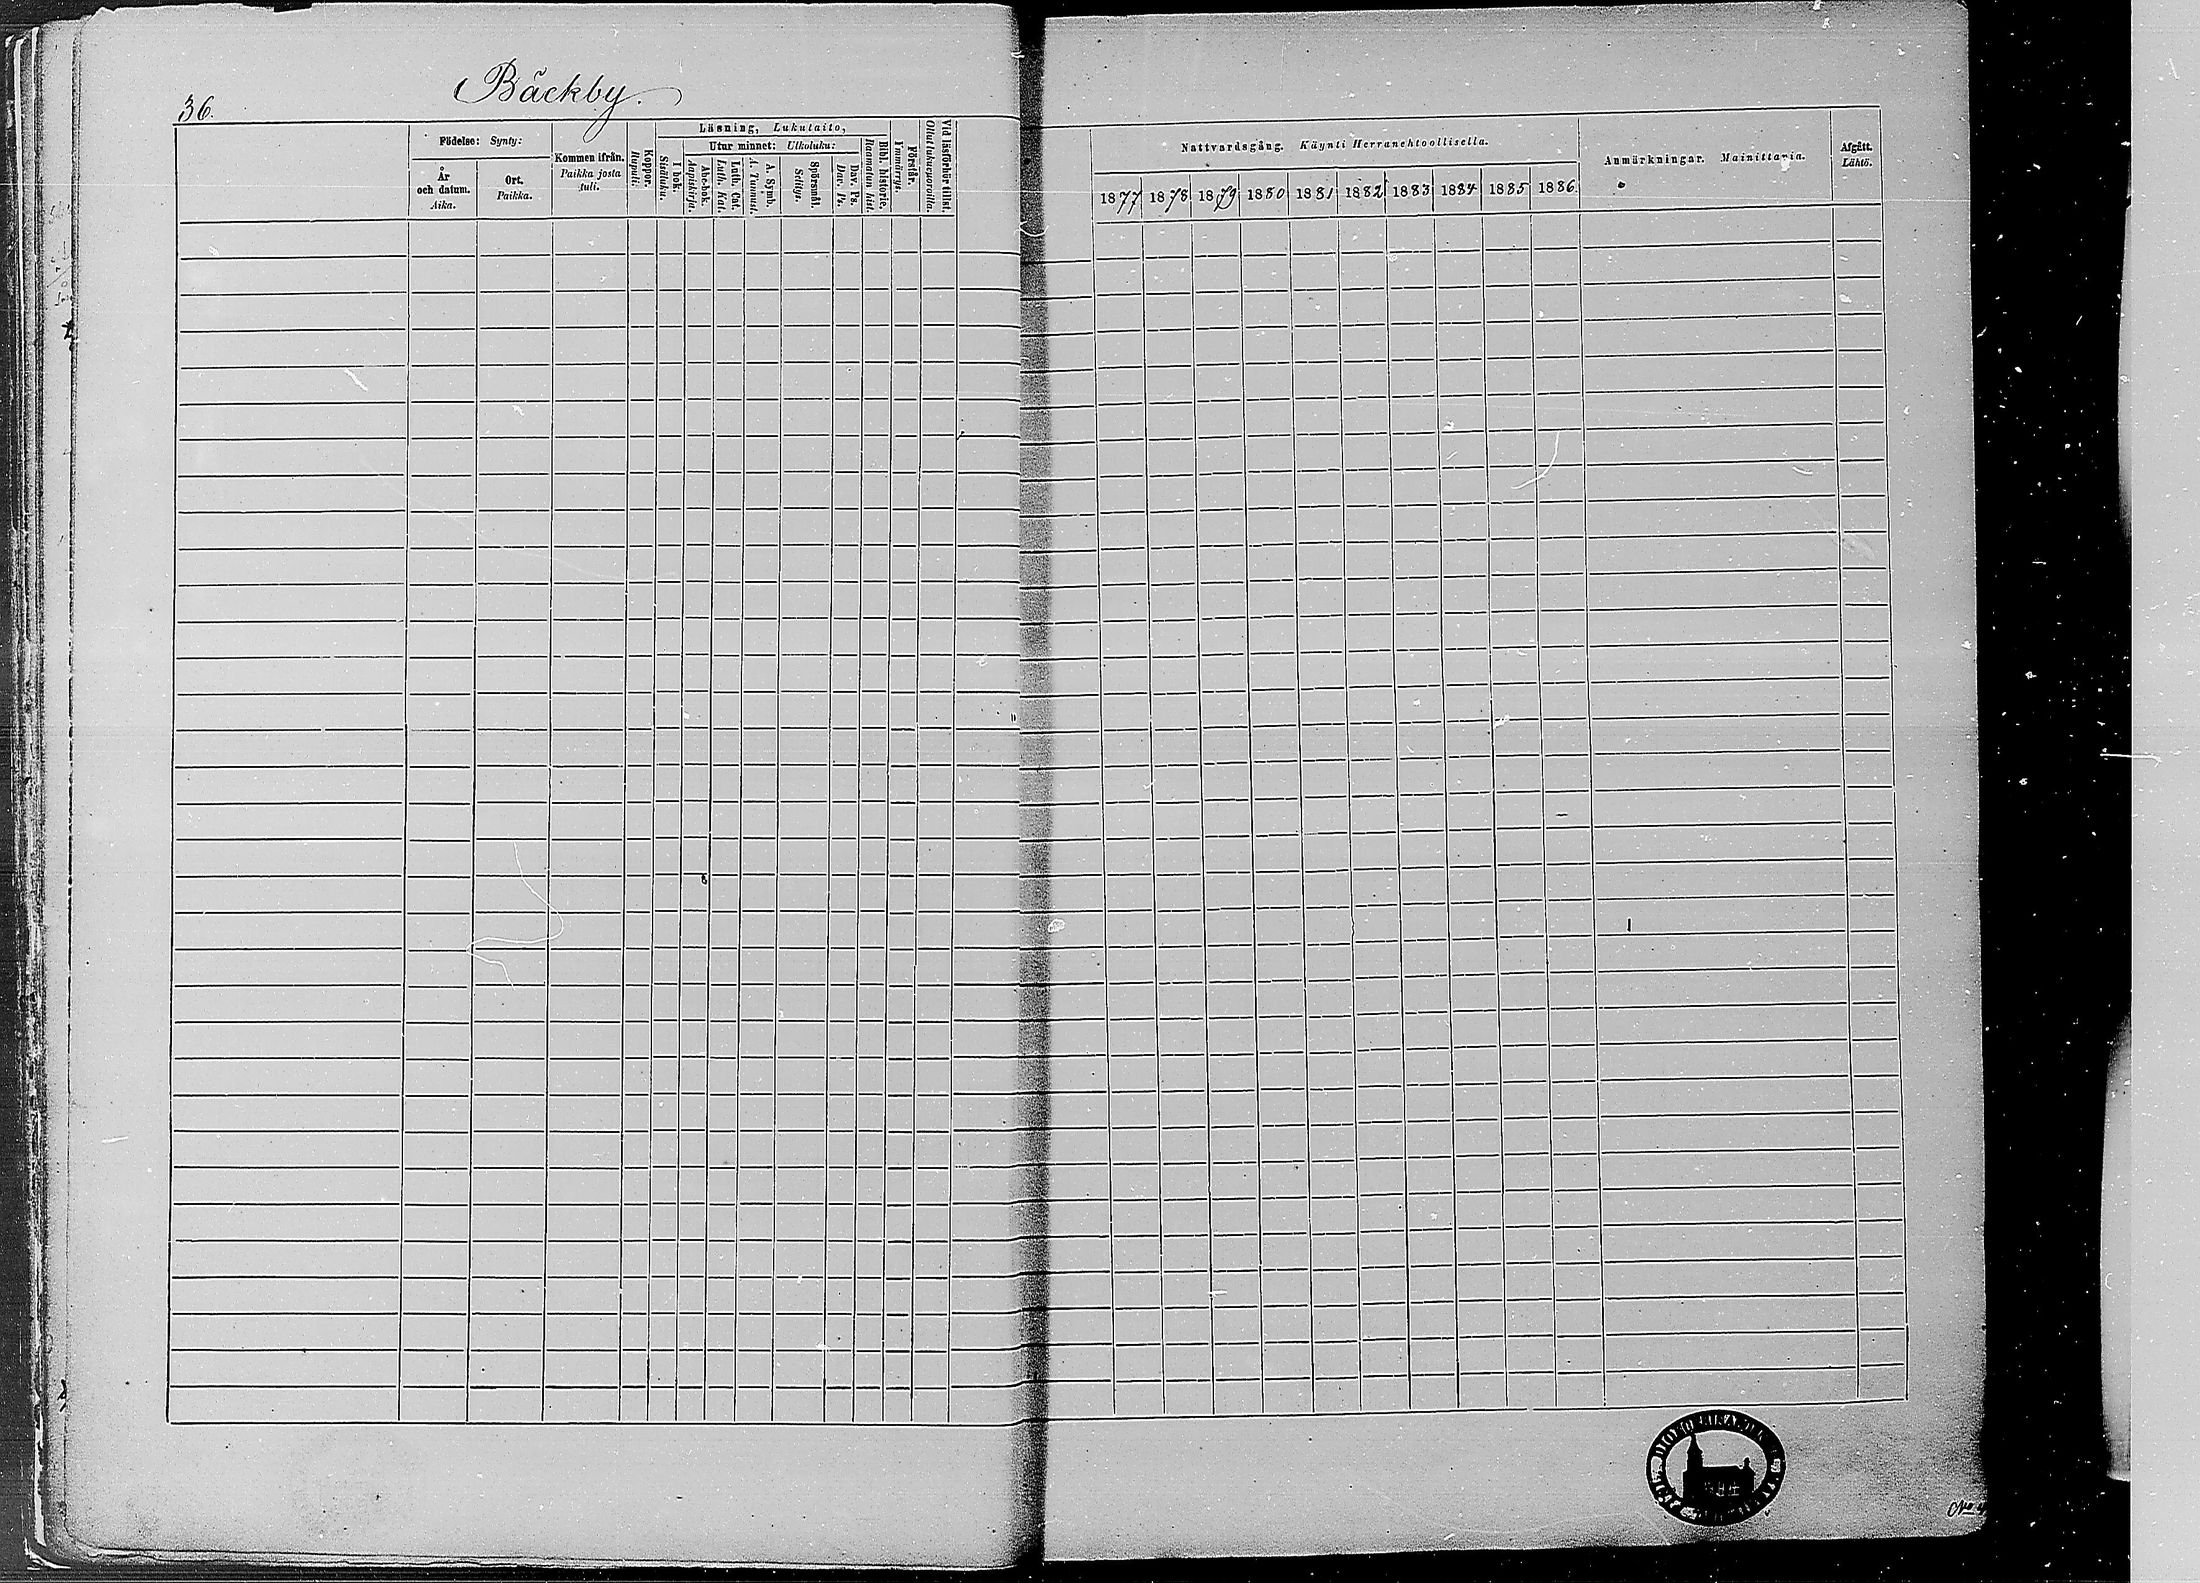 36.
Bäckby.
Födelse: Synty:
År och datum. Aika.
Ort. Paikka.
Kommen ifrån. Paikka josta tuli.
Koppor. Rupuli.
Läsning, Lukutaito,
I bok. Sisäluku.
Utur minnet: Ulkoluku:
Abc-bok. Aapiskirja.
Luth. Cat. Luth. Kat.
A. Symb. A. Tunnust.
Spörsmål. Selitys.
Dav. Ps. Dav. Ps.
Bibl. historie. Raamatun hist.
Förstår. Ymmärrys.
Vid läsförhör tillst. Ollut lukuseporoilla.
Nattvardsgång. Käynti Herranehtoollisella.
1877 1878 1879 1880 1881 1882 1883 1884 1885 1886
Anmärkningar. Mainittavia.
Afgått. Lähtö.